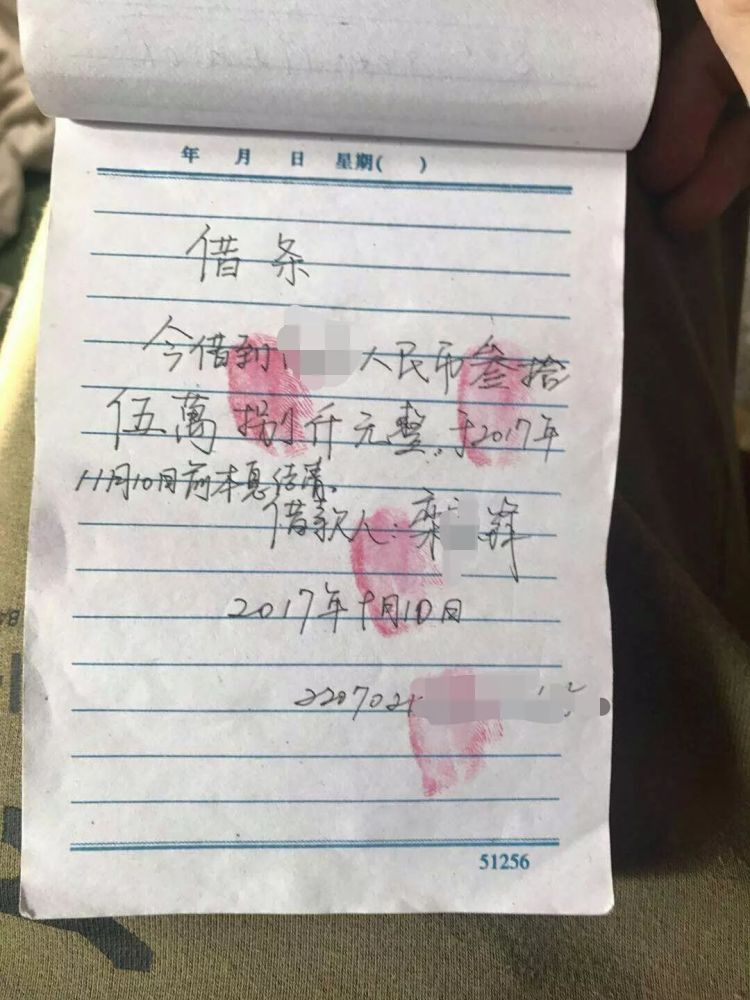 年 月 日 星期( )
借条
今借到 人民币叁拾
伍萬捌仟元整,于2017年
11月10日前本息结清。
借款人:栾
2017年十月10日
220702
51256